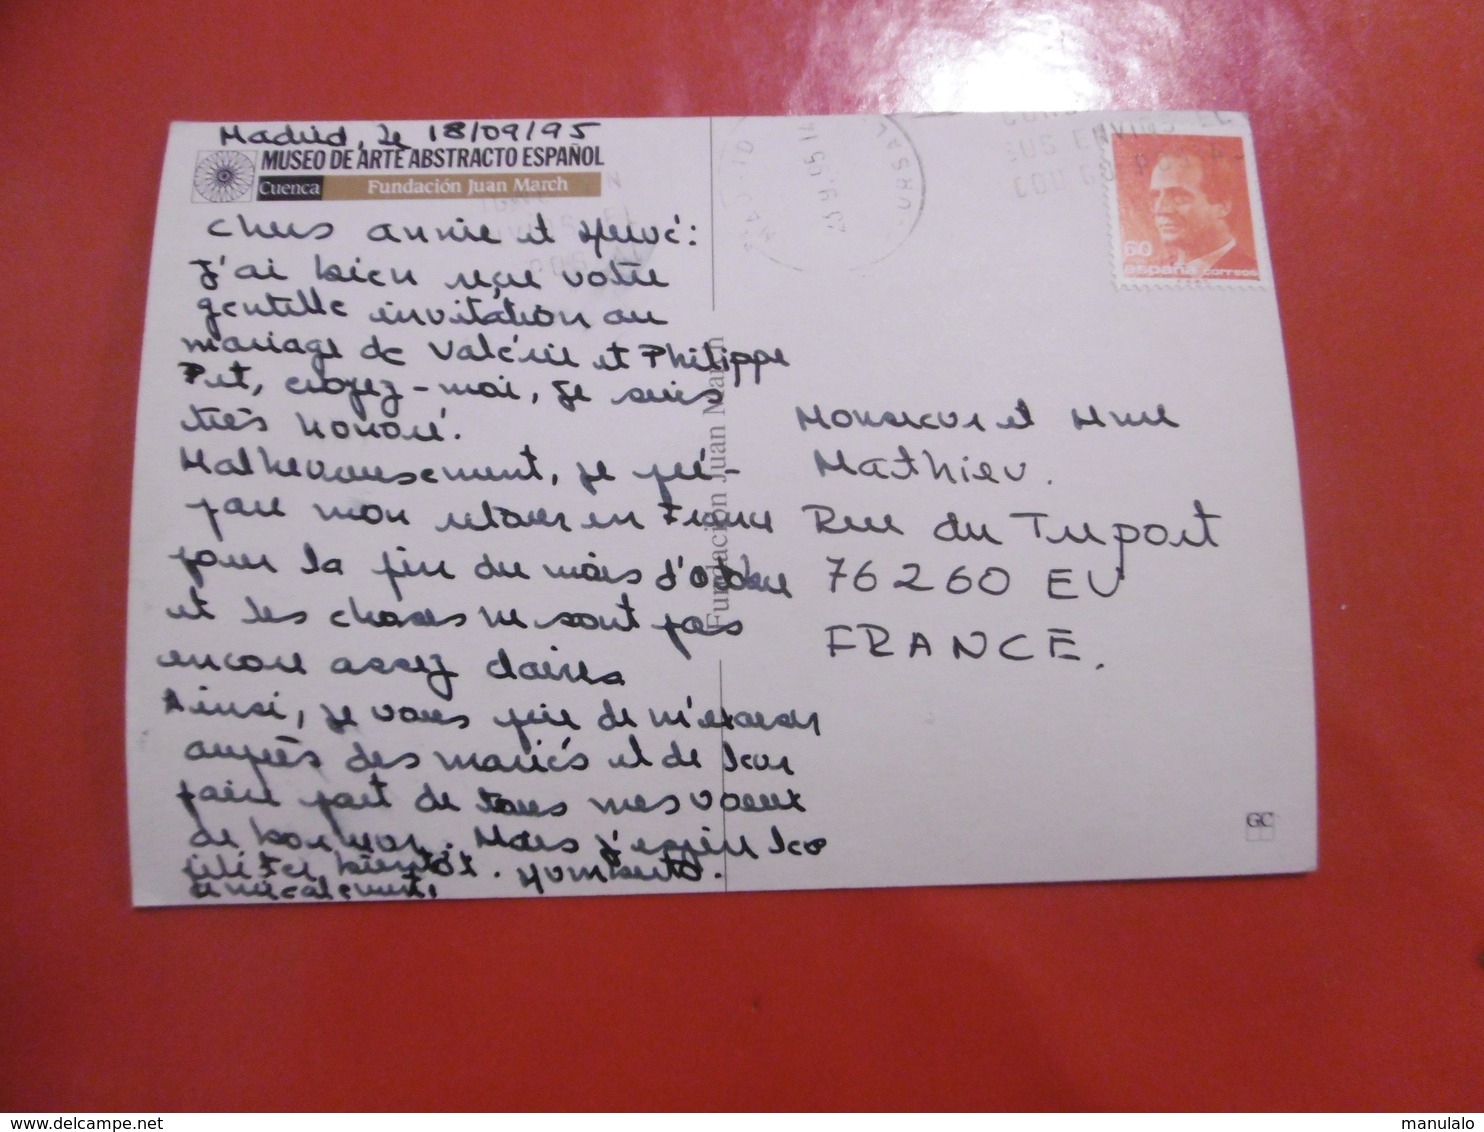 Madrid, le 18/09/95
MUSEO DE ARTE ABSTRACTO ESPAÑOL
Cuenca Fundación Juan March
chers annie et Hervé:
J'ai bien reçu votre
gentille invitation au
mariage de Valérie et Philippe
et, croyez-moi, je suis
très honoré.
Malheureusement, je pré-
pare mon retour en France
pour la fin du mois d'octobre
et les choses ne sont pas
encore assez claires
Ainsi, je vous prie de m'excuser
auprès des mariés et de leur
faire part de tous mes voeux
de bonheur. Mais j'espère les
féliter bientôt. Humberto.
amicalement,
Fundación Juan March
60
españa correos
SUS ENVIOS EL
MADRID
23 9 95 14
Monsieur et Mme
Mathieu.
Rue du Tréport
76260 EU
FRANCE.
GC
delcampe.net
manulalo